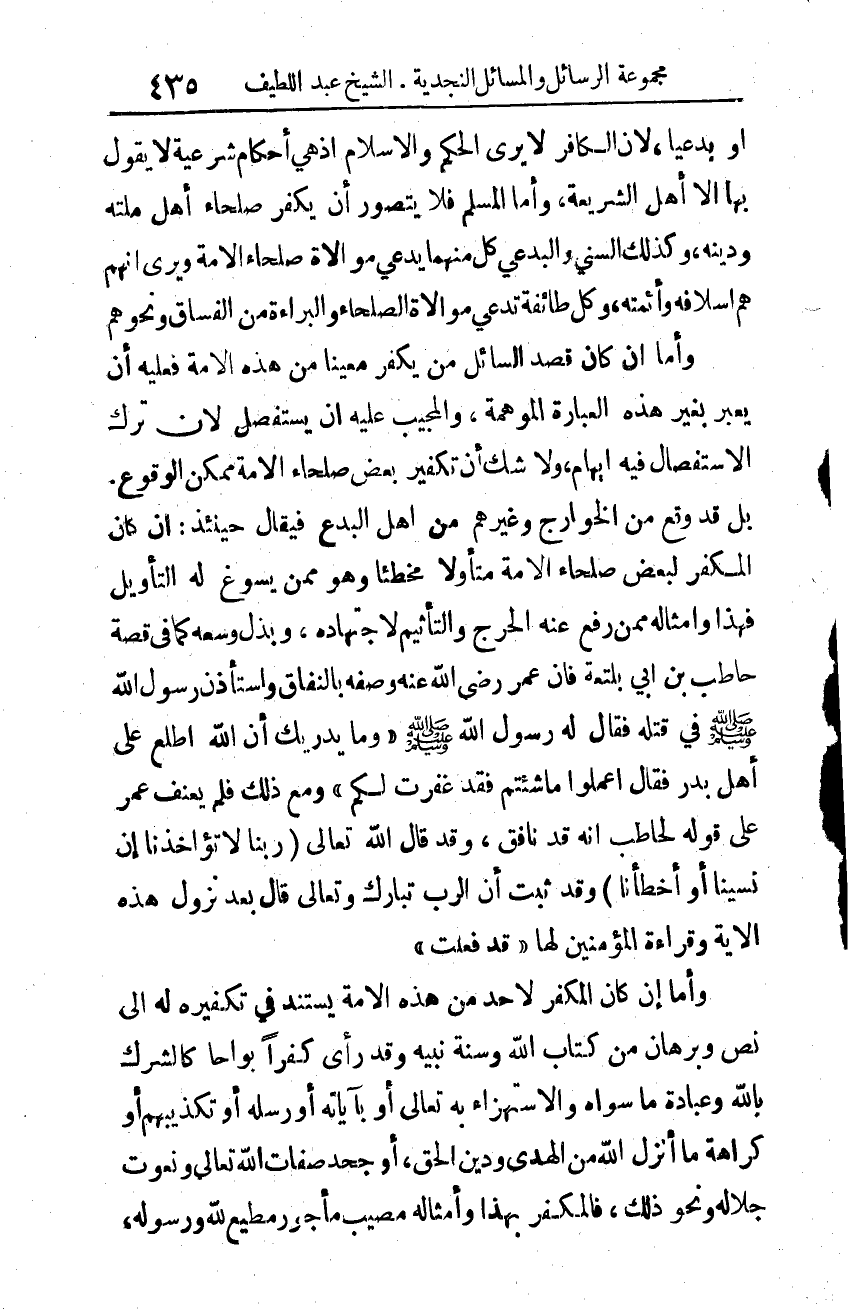 مجموعة الرسائل والمسائل النجدية . الشيخ عبد اللطيف ٤٣٥
او بدعيا، لان الكافر لا يرى الحكم والاسلام اذ هي أحكام شرعية لا يقول
بها الا أهل الشريعة، وأما المسلم فلا يتصور أن يكفر صلحاء أهل ملته
ودينه، وكذلك السني والبدعي كل منهما يدعي موالاة صلحاء الامة ويرى انهم
هم اسلافه وأئمته، وكل طائفة تدعي موالاة الصلحاء والبراءة من الفساق ونحوهم
وأما ان كان قصد السائل من يكفر معينا من هذه الامة فعليه أن
يعبر بغير هذه العبارة الموهمة ، والمجيب عليه ان يستفصل لان ترك
الاستفصال فيه ايهام، ولا شك أن تكفير بعض صلحاء الامة ممكن الوقوع.
بل قد وقع من الخوارج وغيرهم من اهل البدع فيقال حينئذ : ان كان
المكفر لبعض صلحاء الامة متأولا مخطئا وهو ممن يسوغ له التأويل
فهذا وامثاله ممن رفع عنه الحرج والتأثيم لاجتهاده ، وبذل وسعه كما في قصة
حاطب بن ابي بلتعة فان عمر رضي الله عنه وصفه بالنفاق واستأذن رسول الله
ﷺ في قتله فقال له رسول الله ﷺ « وما يدريك أن الله اطلع على
أهل بدر فقال اعملوا ماشئتم فقد غفرت لكم » ومع ذلك فلم يعنف عمر
على قوله لحاطب انه قد نافق ، وقد قال الله تعالى ( ربنا لا تؤاخذنا إن
نسينا أو أخطأنا ) وقد ثبت أن الرب تبارك وتعالى قال بعد نزول هذه
الاية وقراءة المؤمنين لها « قد فعلت »
وأما إن كان المكفر لاحد من هذه الامة يستند في تكفيره له الى
نص وبرهان من كتاب الله وسنة نبيه وقد رأى كفراً بواحا كالشرك
بالله وعبادة ما سواه والاستهزاء به تعالى أو بآياته أو رسله أو تكذيبهم أو
كراهة ما أنزل الله من الهدى ودين الحق، أو جحد صفات الله تعالى ونعوت
جلاله ونحو ذلك ، فالمكفر بهذا وأمثاله مصيب مأجور مطيع لله ورسوله،